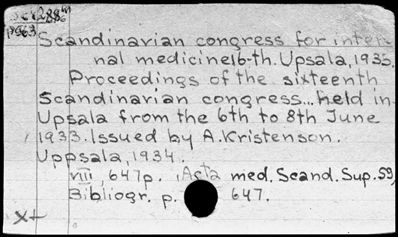 Scandinavian congress for inter-
nal medicine 16-th. Upsala, 1933.
Proceedings of the sixteenth
Scandinavian congress... held in
Upsala from the 6th to 8th June
1933. Issued by A. Kristenson.
Uppsala, 1934.
VIII, 647p. (Acta med. Scand. Sup. 59)
Bibliogr. p. 647.
X+